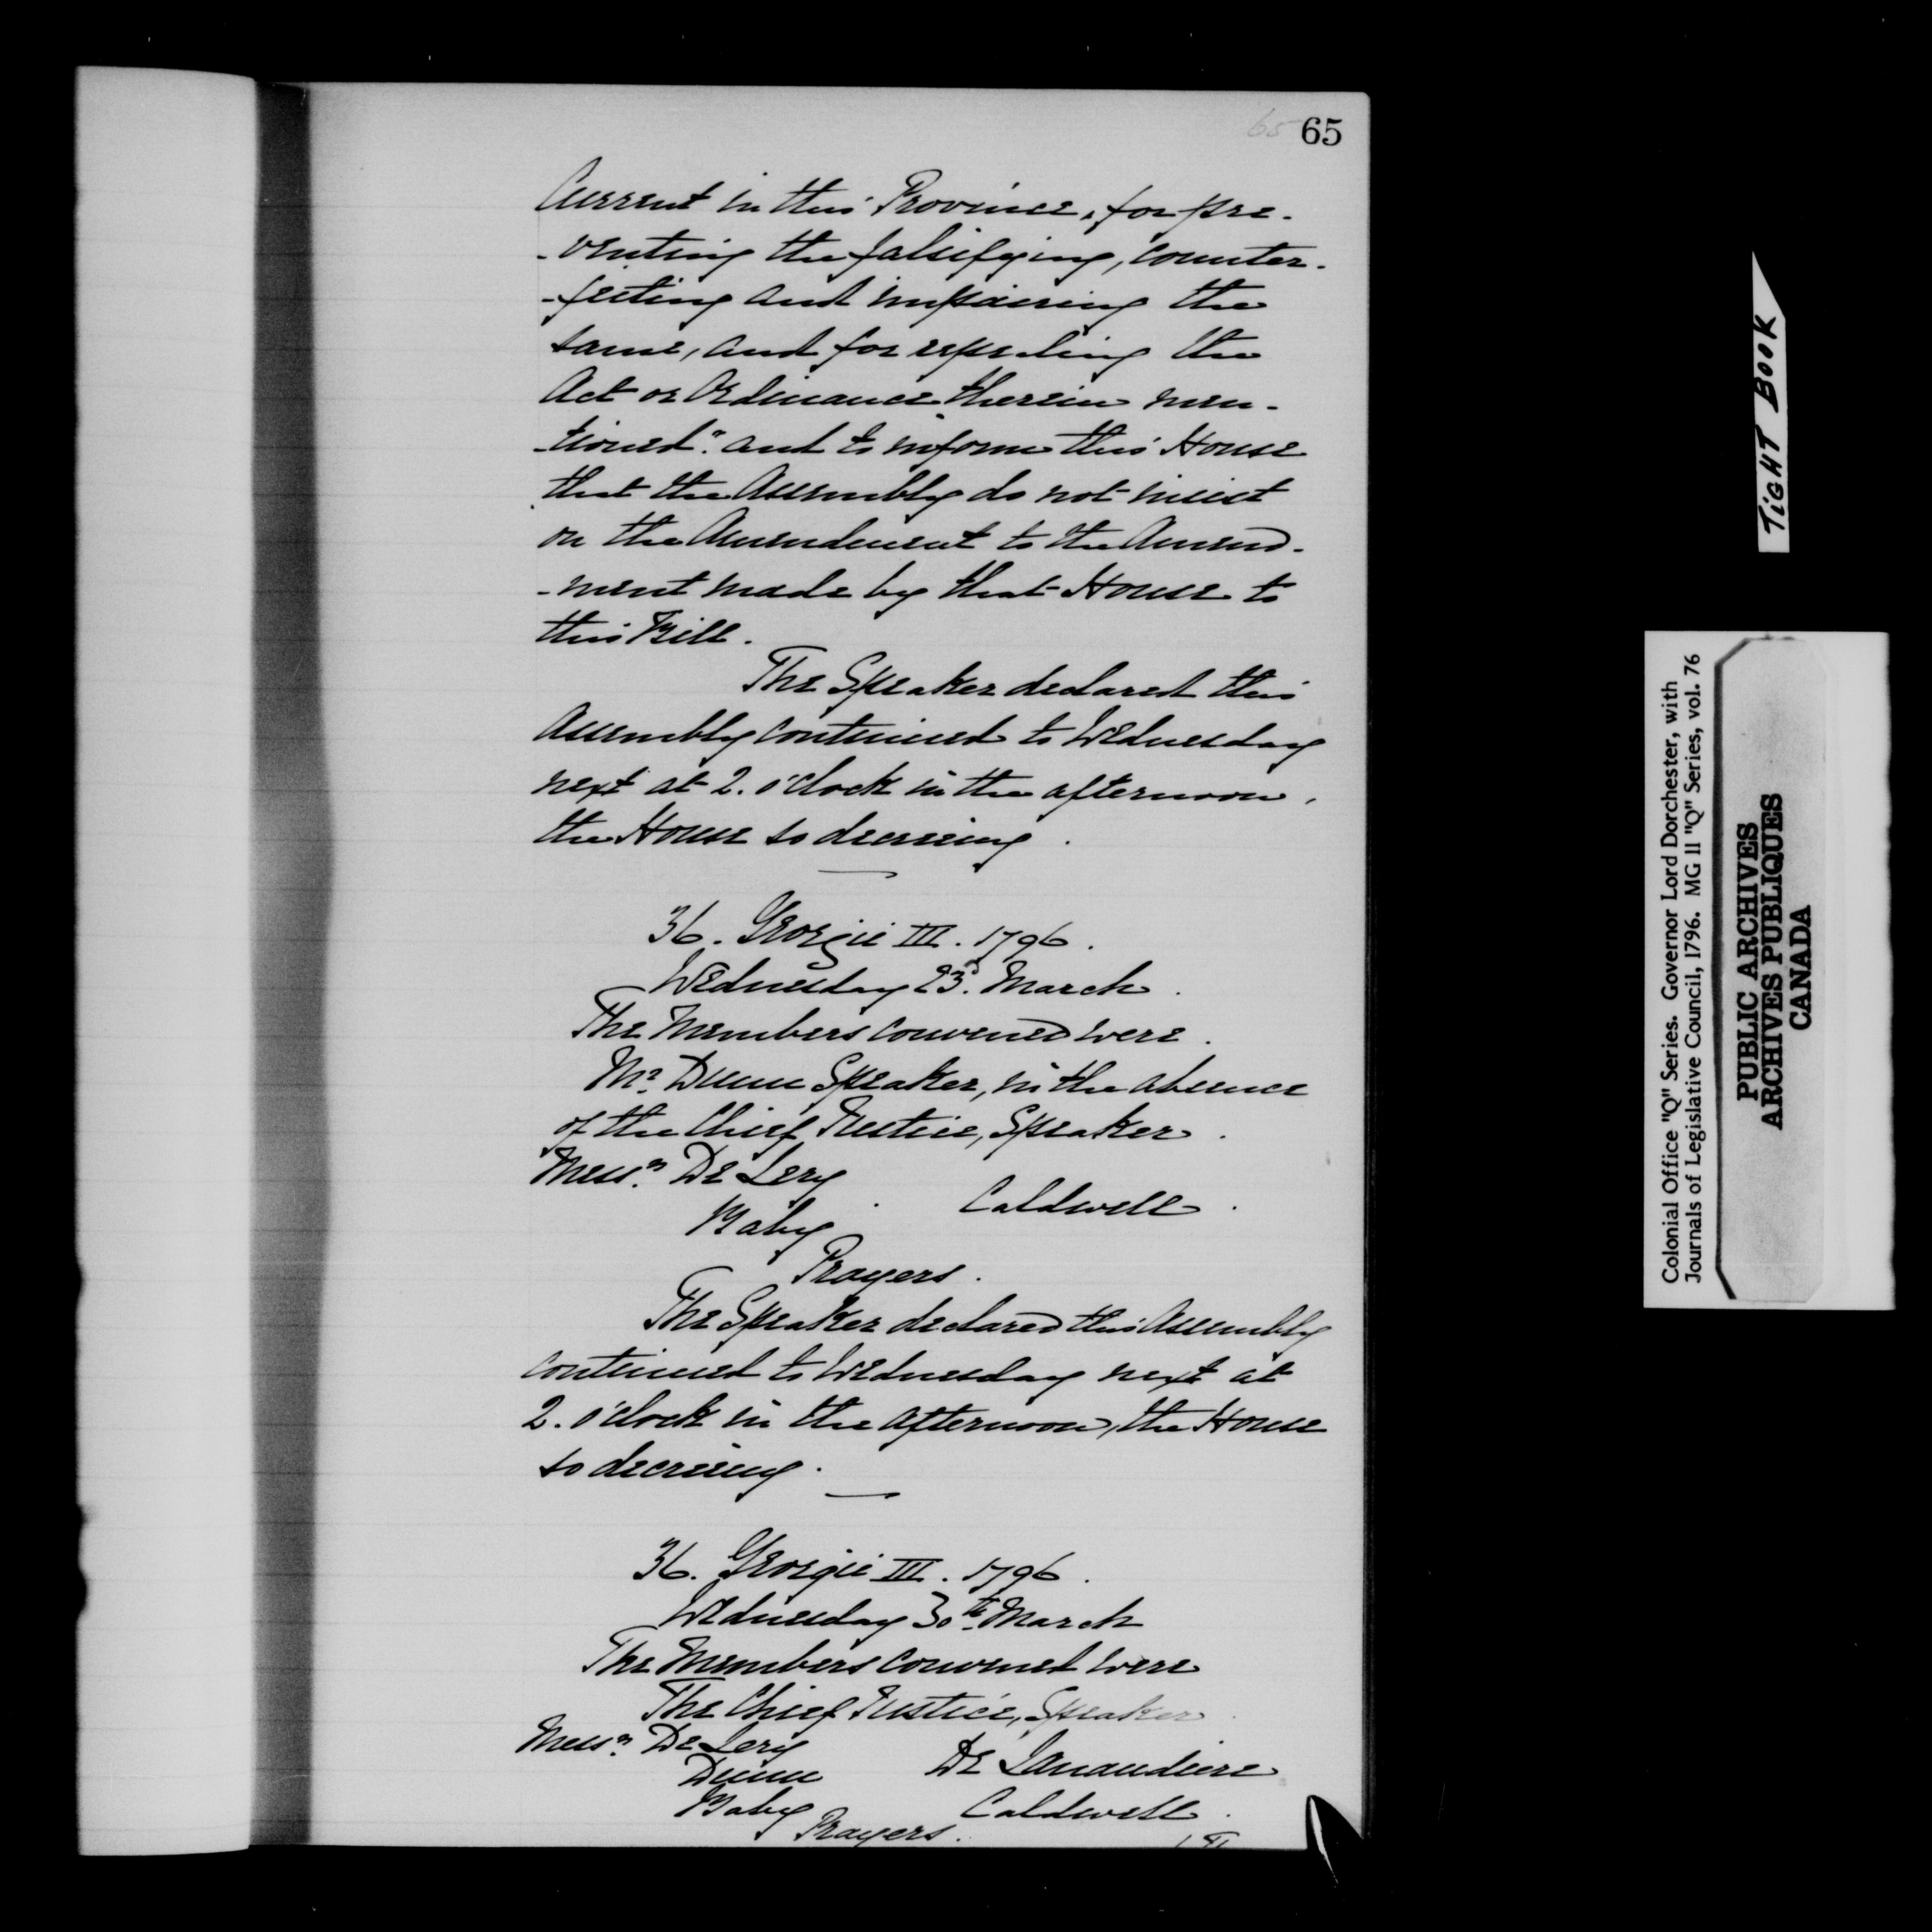 65 65
Current in this Province, for pre-
-venting the falsifying, counter-
-feiting and impairing the
same, and for repealing the
Act or Ordinance therein men-
-tioned". and to inform this House
that the Assembly do not insist
on the Amendment to the Amend-
-ment made by that House to
this Bill.
The Speaker declared this
Assembly continued to Wednesday
next at 2. o'clock in the afternoon,
the House so decreeing.
36. Georgii III. 1796.
Wednesday 23d. March.
The Members convened were.
Mr. Dunn Speaker, in the absence
of the Chief Justice, Speaker.
Messrs. De Lery
Caldwell.
Baby
Prayers.
The Speaker declared this Assembly
continued to Wednesday next at
2. o'clock in the afternoon, the House
so decreeing.
36. Georgii III. 1796.
Wednesday 30th March
The Members convened were
The Chief Justice, Speaker.
Messrs. De Lery
Dunn De Lanaudiere
Baby Caldwell.
Prayers.
TiGHT BOOK
Colonial Office "Q" Series. Governor Lord Dorchester, with
Journals of Legislative Council, 1796. MG 11 "Q" Series, vol. 76
PUBLIC ARCHIVES
ARCHIVES PUBLIQUES
CANADA